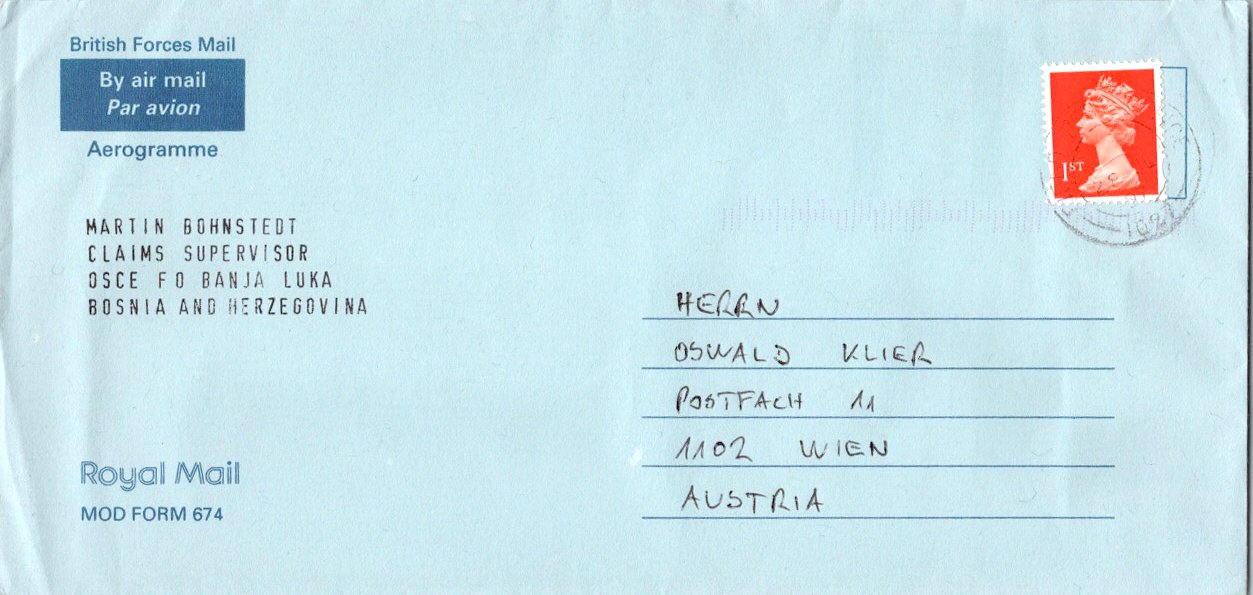 British Forces Mail
By air mail
Par avion
Aerogramme
1ST
MARTIN BOHNSTEDT
CLAIMS SUPERVISOR
OSCE FO BANJA LUKA
BOSNIA AND HERZEGOVINA
HERRN
OSWALD KLIER
POSTFACH 11
1102 WIEN
AUSTRIA
Royal Mail
MOD FORM 674